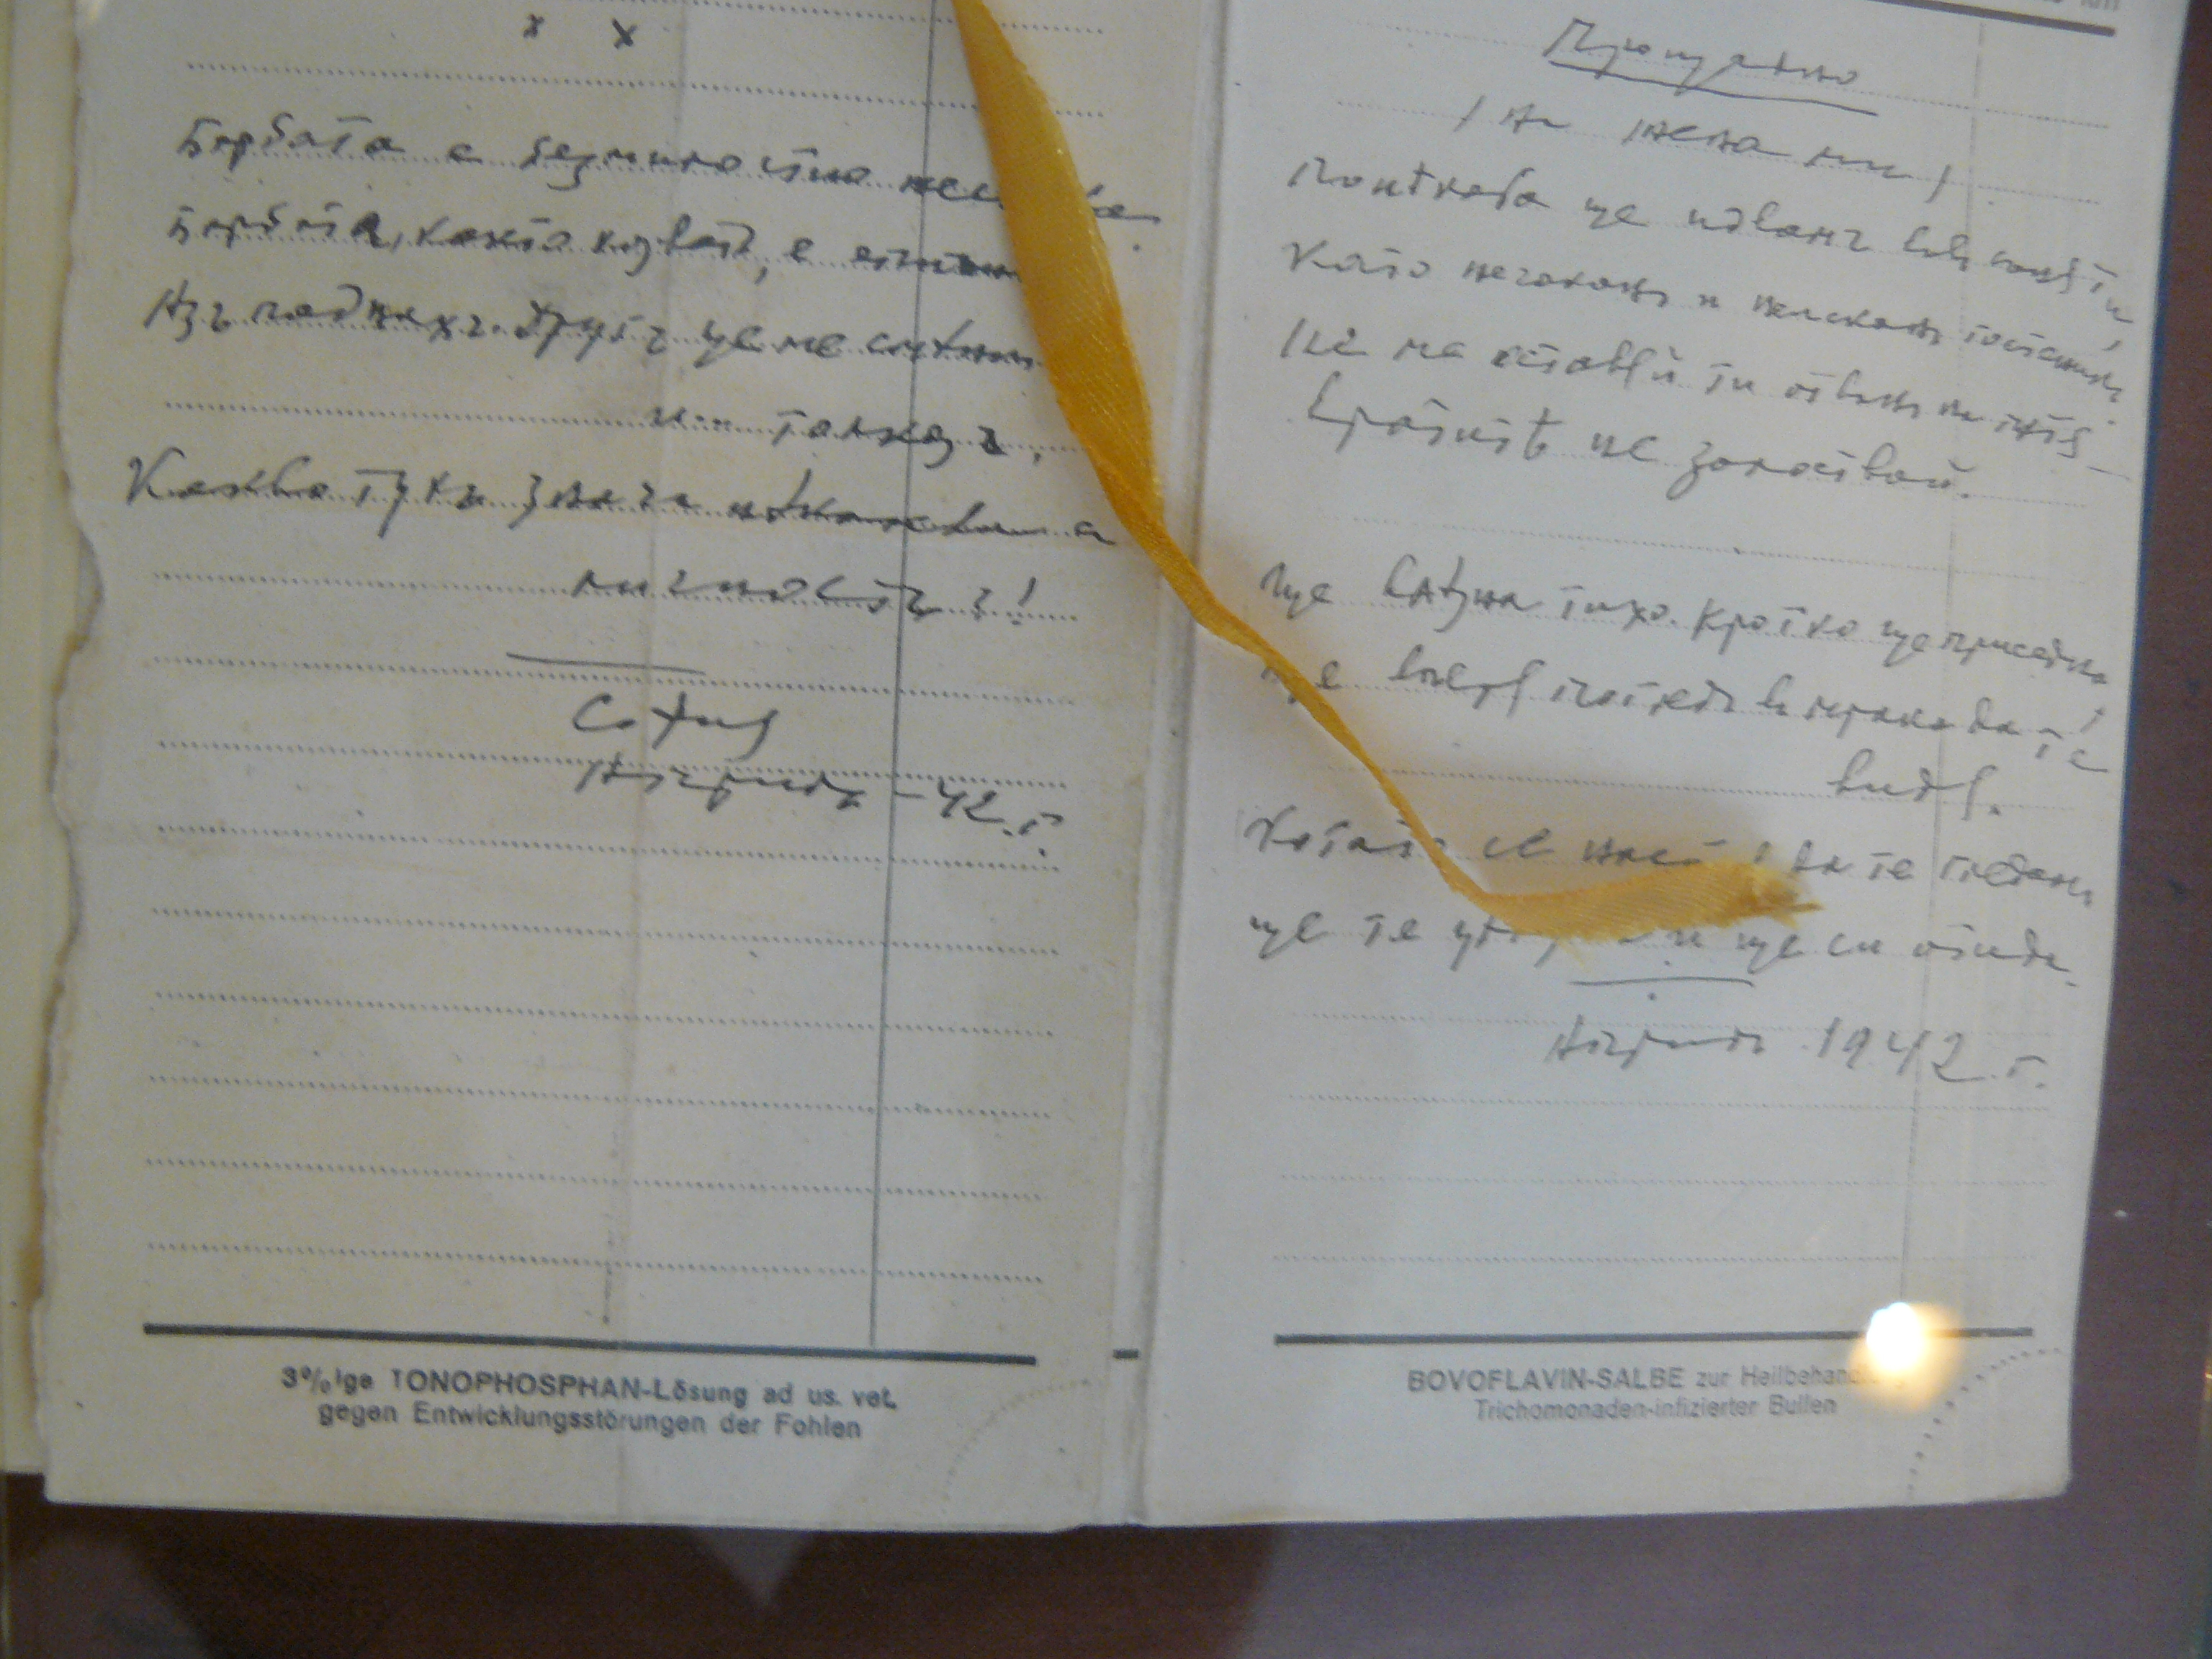 x x
Борбата е безмилостно
Борбата, както казватъ, е
Азъ паднахъ. Другъ ще ме смѣни
и... толкозъ.
Какво тукъ значи нѣкаква си
личность?!
София
Априлъ - 42 г.
Прощално
/на жена ми/
Понѣкога ще идвамъ въ съня ти,
Като нечаканъ и неисканъ гостенинъ.
Не ме оставяй ти отвънъ на пътя –
Вратитѣ не залоствай.
Ще влѣзна тихо. Кротко ще приседна
ще вперя погледъ въ мрака да те
видя.
Когато се да те гледамъ
ще те и ще си отида.
Априлъ 1942 г.
3%ige TONOPHOSPHAN-Lösung ad us. vet.
gegen Entwicklungsstörungen der Fohlen
BOVOFLAVIN-SALBE zur
Trichomonaden-infizierter Bullen